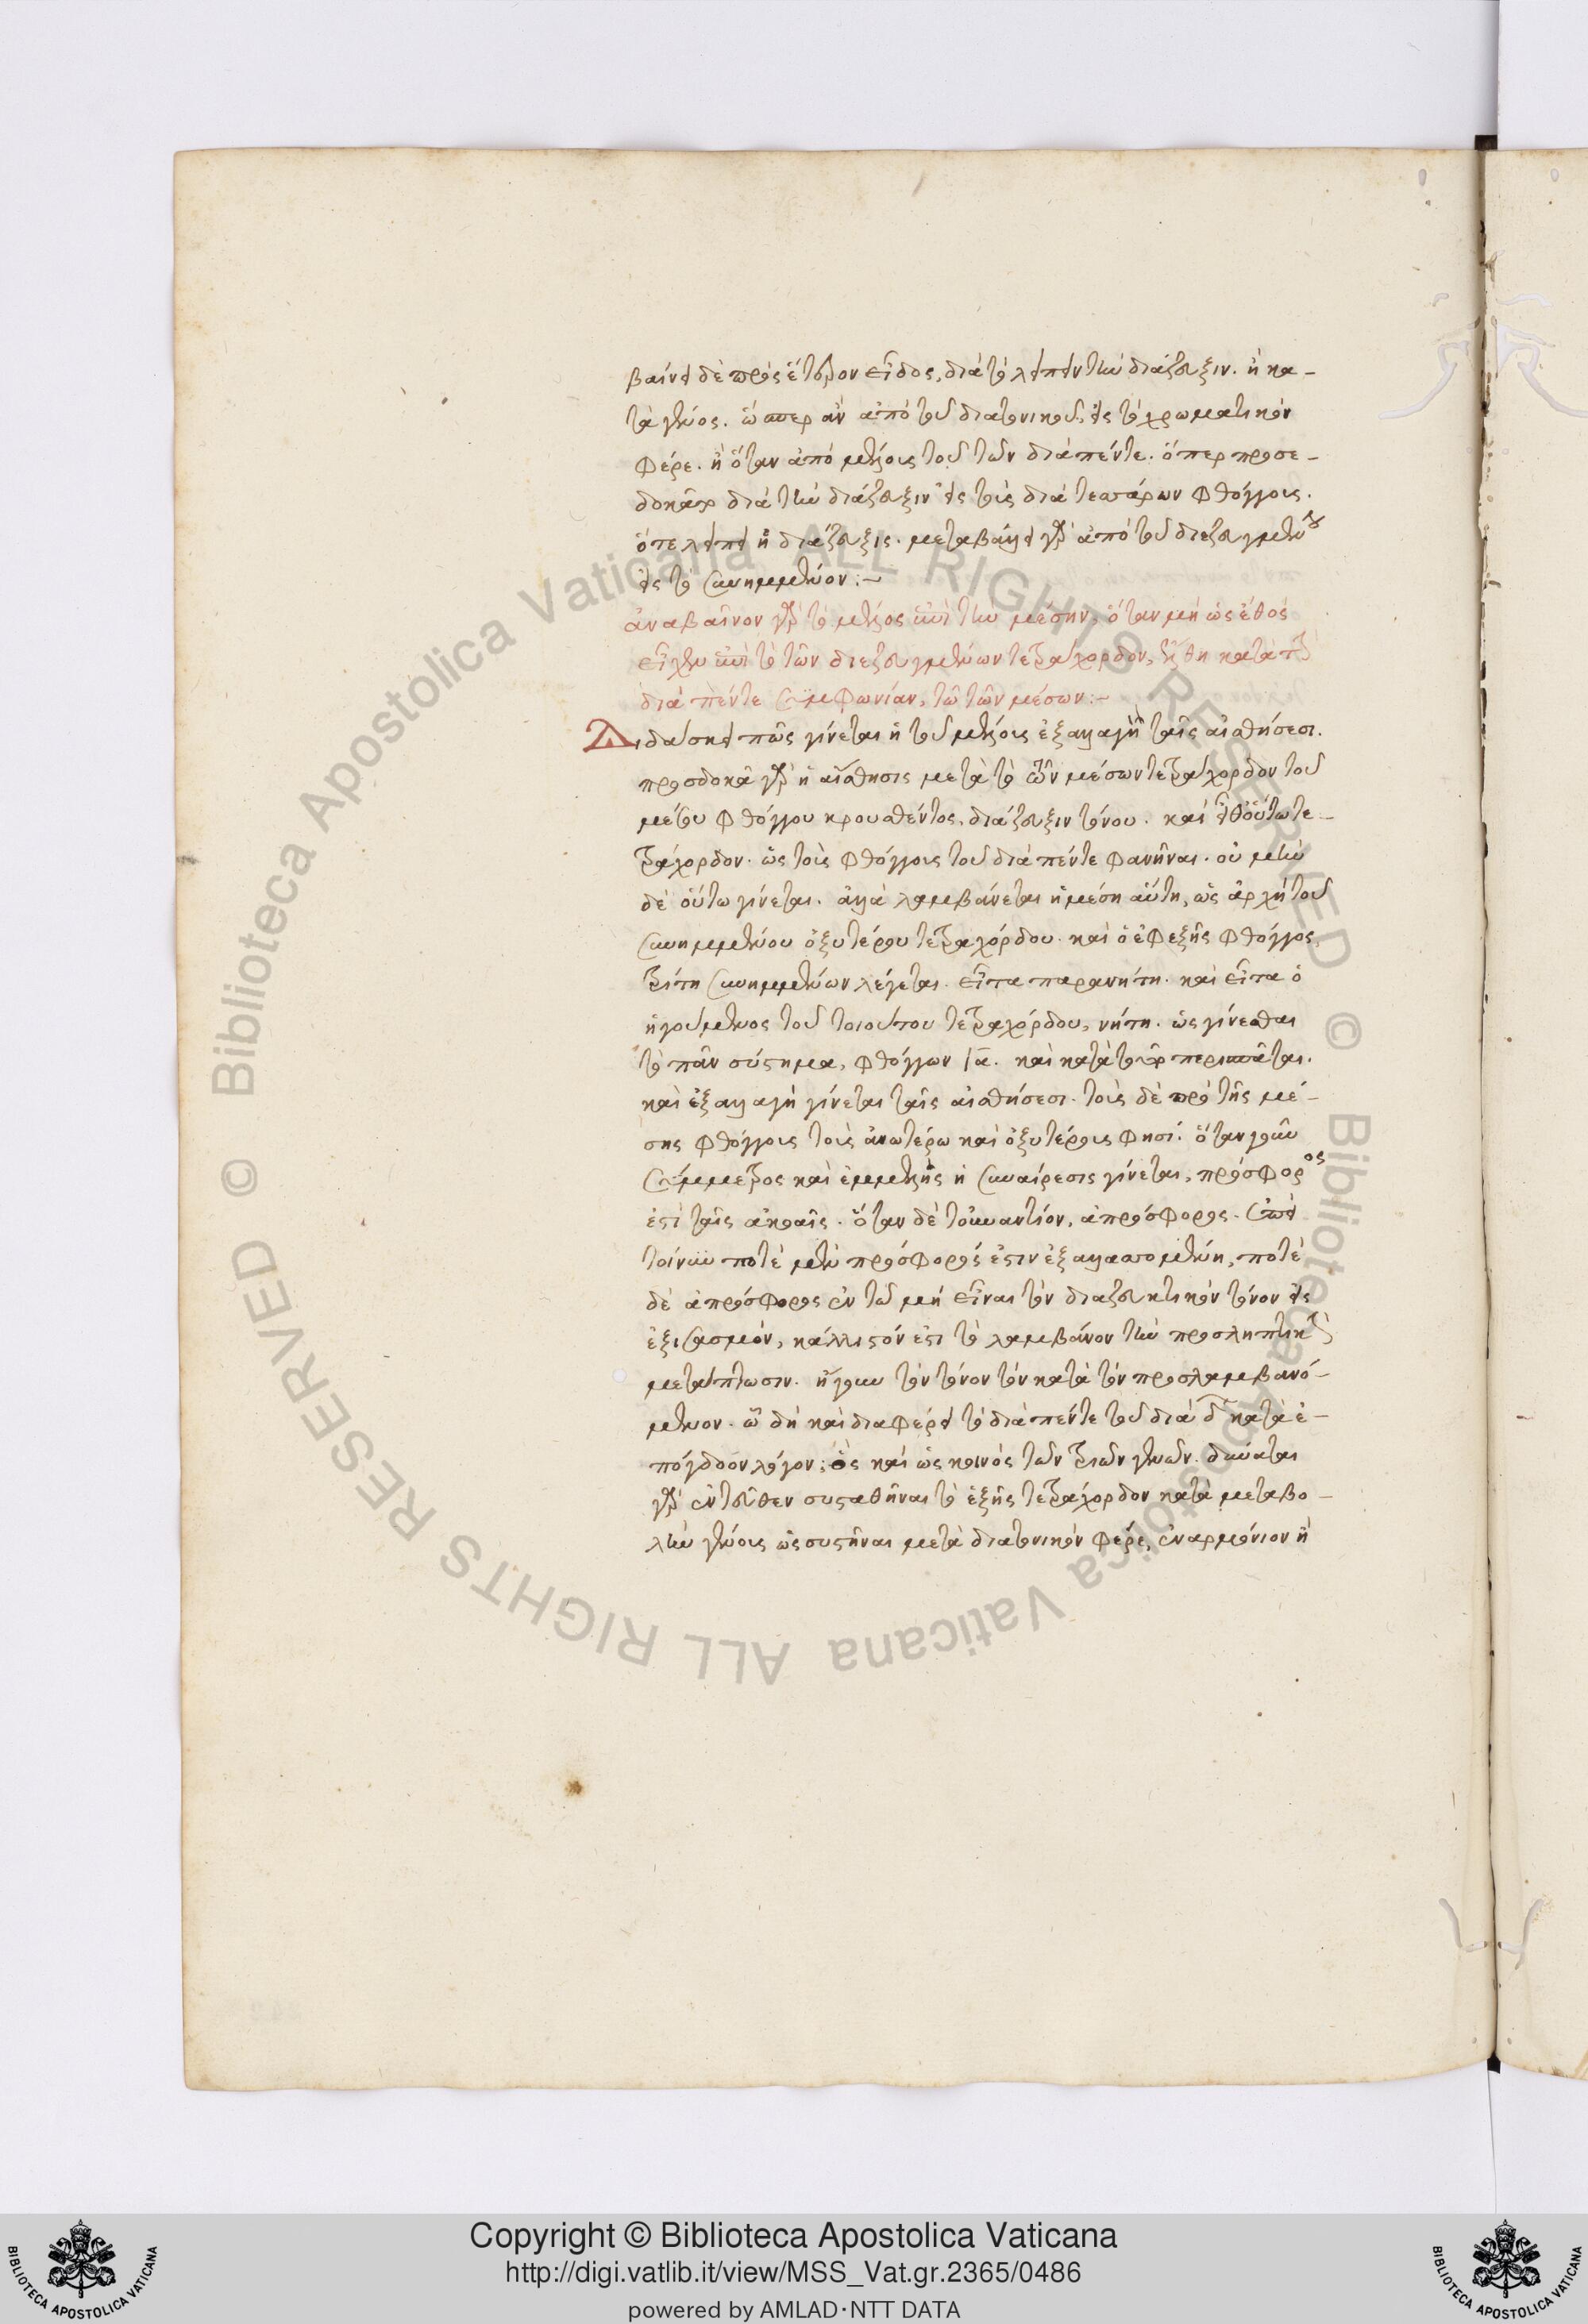 βαίνει δὲ πρὸς ἕτερον εἶδος, διὰ τὸ λείπειν τὴν διάζευξιν. ἢ κα-
τὰ γένος. ὥσπερ ἂν ἀπὸ τοῦ διατονικοῦ, εἰς τὸ χρωματικὸν
φέρε. ἢ ὅταν ἀπὸ μέλους τοῦ τῶν διαπέντε. ὅπερ προσε-
δοκᾶτο διὰ τὴν διάζευξιν εἰς τοῖς διὰ τεσσάρων φθόγγοις.
ὅτε λείπει ἡ διάζευξις. μεταβάλλει γὰρ ἀπὸ τοῦ διεζευγμένου
εἰς τὸ συνημμένον:~
ἀναβαῖνον γὰρ τὸ μέλος ἐπὶ τὴν μέσην, ὅταν μὴ ὡς ἔθος
εἶχεν ἐπὶ τὸ τῶν διεζευγμένων τετράχορδον, ἥχθη κατὰ τὴν
διὰ πέντε συμφωνίαν, τῷ τῶν μέσων:~
Διδάσκει πῶς γίνεται ἡ τοῦ μέλους ἐξαλλαγὴ ταῖς αἰσθήσεσι.
προσδοκᾷ γὰρ ἡ αἴσθησις μετὰ τὸ τῶν μέσων τετράχορδον τοῦ
μέσου φθόγγου κρουσθέντος, διάζευξιν τόνου. καὶ εἶθ' οὕτω τε-
τράχορδον. ὡς τοῖς φθόγγοις τοῦ διὰ πέντε φανῆναι. οὐ μὴν
δὲ οὕτω γίνεται. ἀλλὰ λαμβάνεται ἡ μέση αὕτη, ὡς ἀρχὴ τοῦ
συνημμένου ὀξυτέρου τετραχόρδου. καὶ ὁ ἐφεξῆς φθόγγος,
τρίτη συνημμένων λέγεται. εἶτα παρανήτη. καὶ εἶτα ὁ
ἡγούμενος τοῦ τοιούτου τετραχόρδου, νήτη. ὡς γίνεσθαι
τὸ πᾶν σύστημα, φθόγγων ια. καὶ κατὰ τοῦτο περισπᾶται.
καὶ ἐξαλλαγὴ γίνεται ταῖς αἰσθήσεσι. τοῖς δὲ πρὸ τῆς μέ-
σης φθόγγοις τοῖς ἀνωτέρω καὶ ὀξυτέροις φησί. ὅταν γοῦν
σύμμετρος καὶ ἐμμελὴς ἡ συναίρεσις γίνεται, πρόσφορος
ἐστὶ ταῖς ἀκοαῖς. ὅταν δὲ τοὐναντίον, ἀπρόσφορος. ἐπεὶ
τοίνυν ποτὲ μὲν πρόσφορός ἐστιν ἐξαλλασσομένη, ποτὲ
δὲ ἀπρόσφορος ἐν τῷ μὴ εἶναι τὸν διαζευκτικὸν τόνον εἰς
ἐξισασμὸν, κάλλιστόν ἐστι τὸ λαμβάνον τὴν προσληπτικὴν
μετάπτωσιν. ἤγουν τὸν τόνον τὸν κατὰ τὸν προσλαμβανό-
μενον. ᾧ δὴ καὶ διαφέρει τὸ διὰ πέντε τοῦ διὰ δ κατὰ ἐ-
πόγδοον λόγον; ὃς καὶ ὡς κοινὸς τῶν τριῶν γενῶν. δύναται
γὰρ ἐντεῦθεν συσταθῆναι τὸ ἑξῆς τετράχορδον κατὰ μεταβο-
λὴν γένους ὡς συστῆναι μετὰ διατονικὸν φέρε, ἐναρμόνιον ἢ
Copyright © Biblioteca Apostolica Vaticana
http://digi.vatlib.it/view/MSS_Vat.gr.2365/0486
powered by AMLAD·NTT DATA